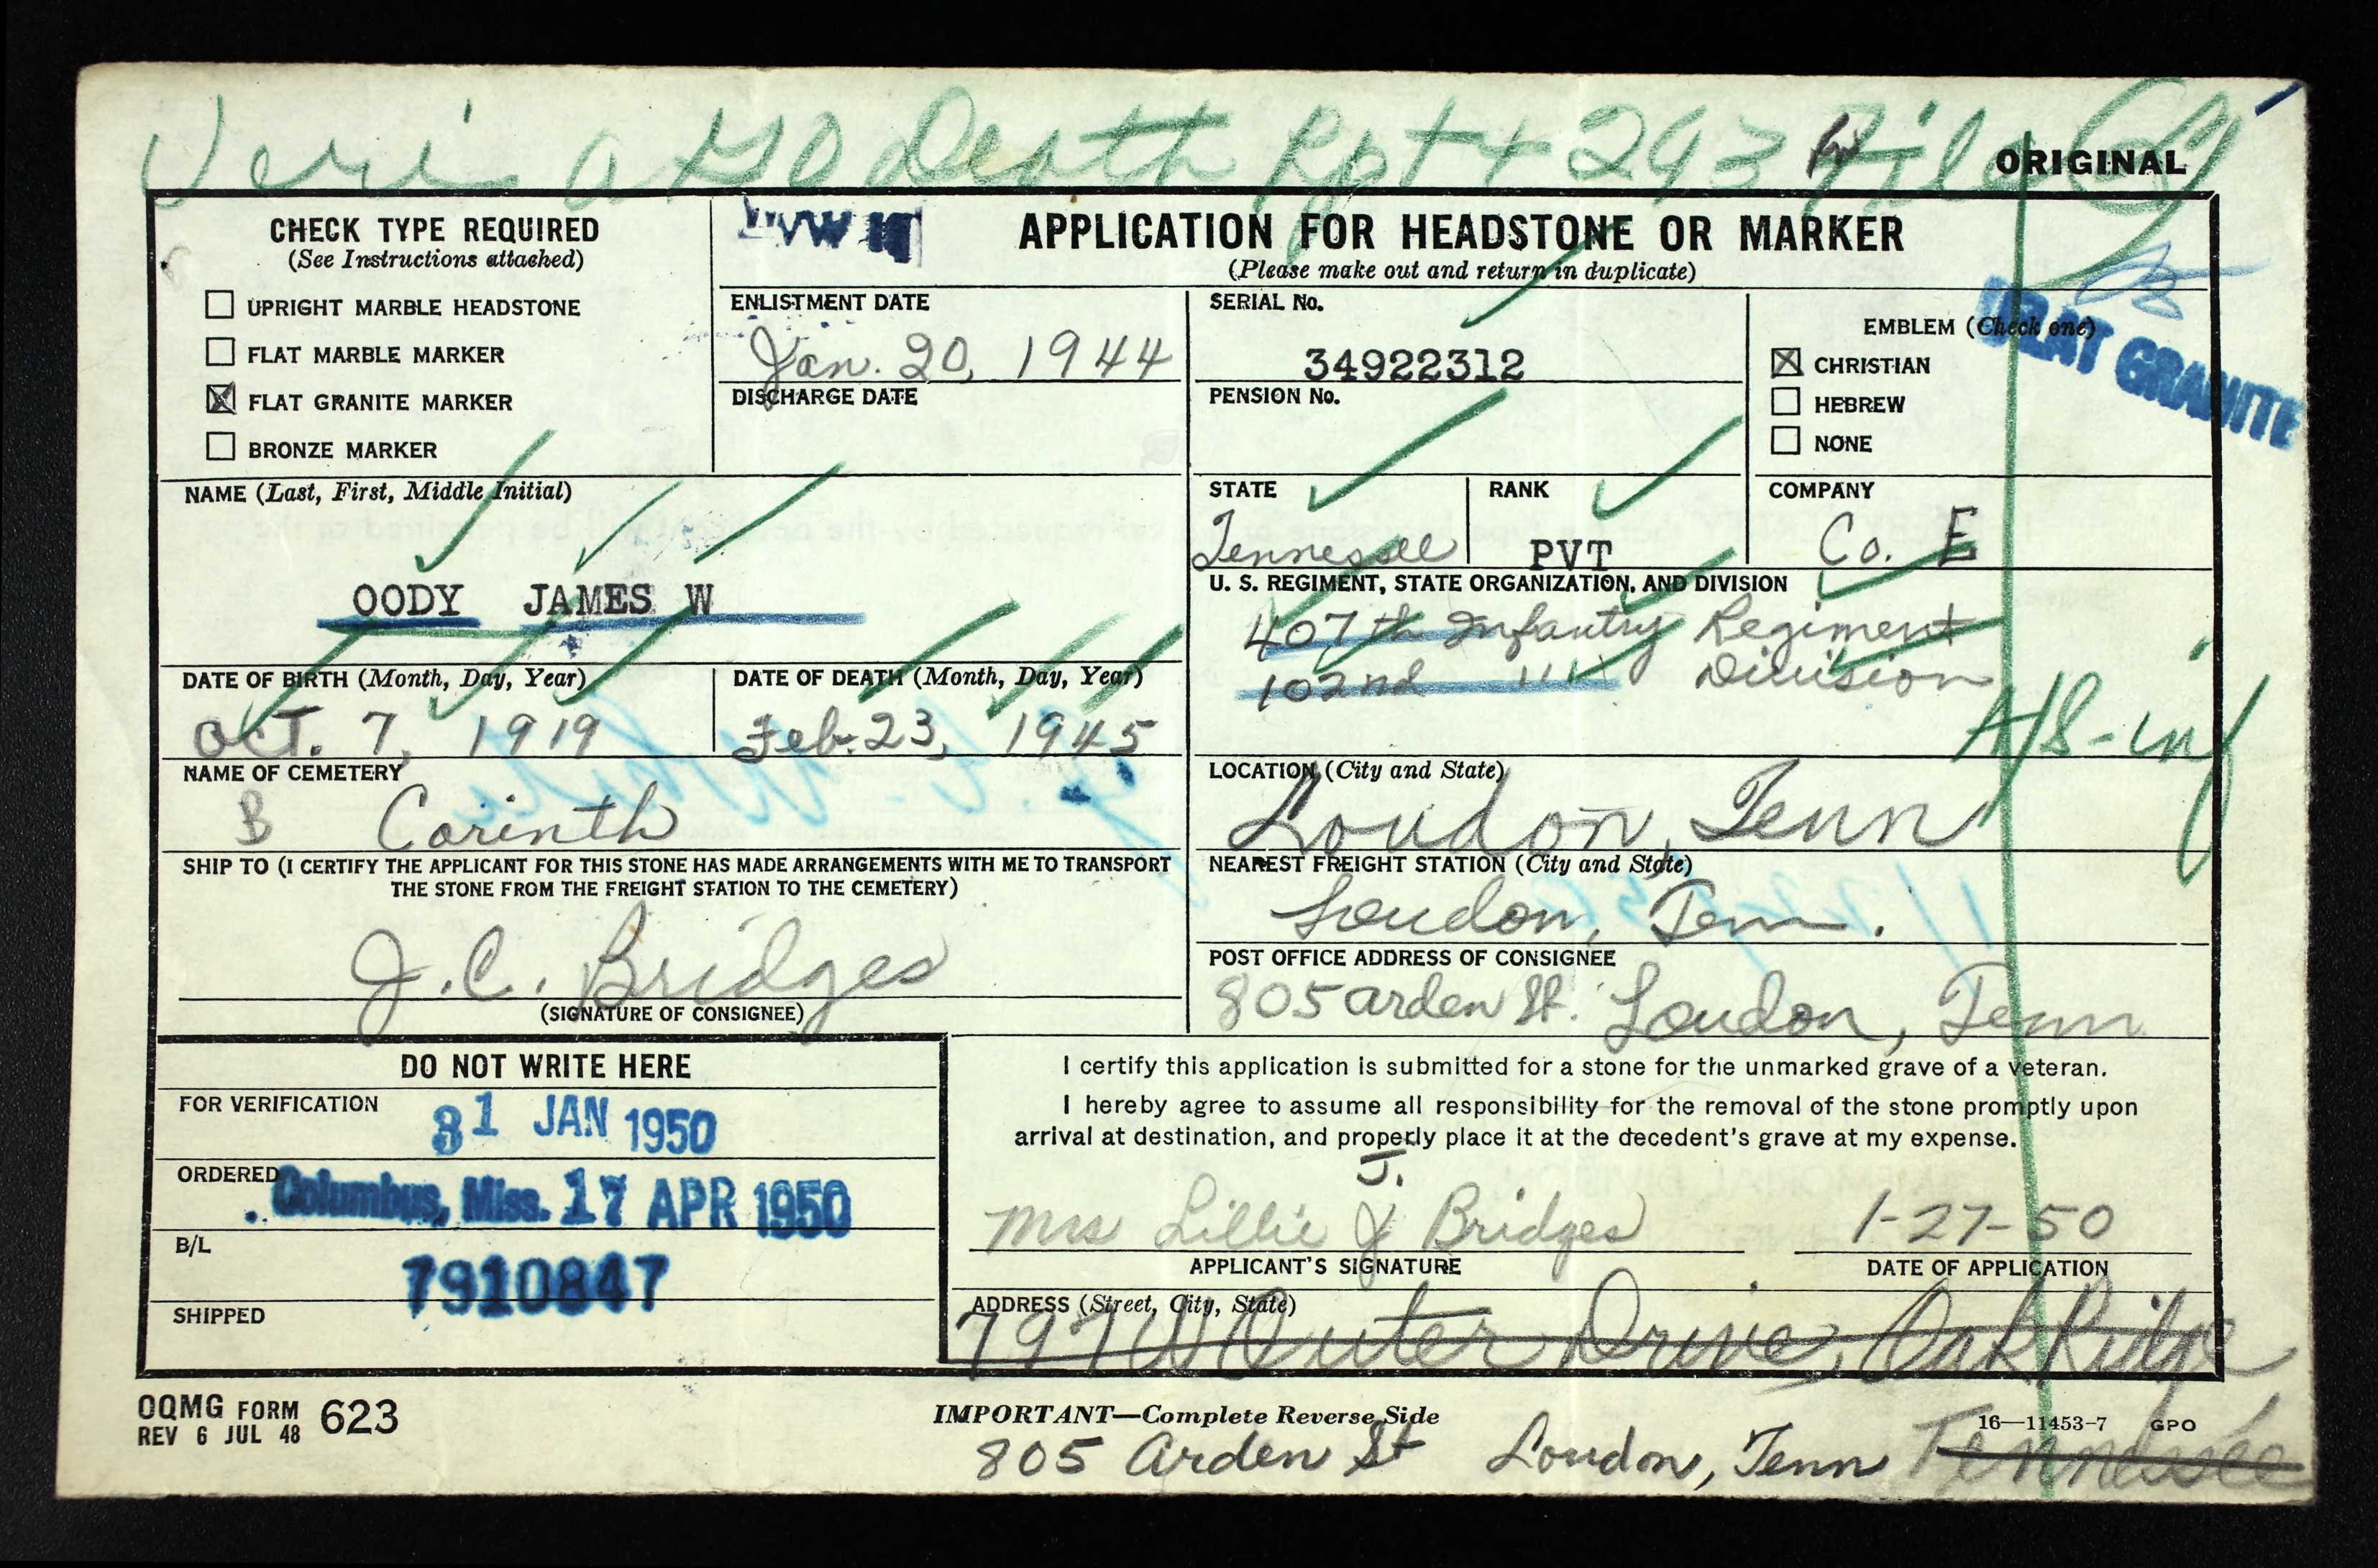 Veri AGO Death Rpt + 293 File
ORIGINAL
CHECK TYPE REQUIRED
(See Instructions attached)
UPRIGHT MARBLE HEADSTONE
FLAT MARBLE MARKER
FLAT GRANITE MARKER
BRONZE MARKER
WW II
APPLICATION FOR HEADSTONE OR MARKER
(Please make out and return in duplicate)
ENLISTMENT DATE
Jan. 20, 1944
DISCHARGE DATE
SERIAL No.
34922312
PENSION No.
EMBLEM (Check one)
CHRISTIAN
HEBREW
NONE
FLAT GRANITE
NAME (Last, First, Middle Initial)
OODY JAMES W
STATE
Tennessee
RANK
PVT
COMPANY
Co. E
U. S. REGIMENT, STATE ORGANIZATION, AND DIVISION
407th Infantry Regiment
102nd " Division
A/8-inf
DATE OF BIRTH (Month, Day, Year)
Oct. 7, 1919
DATE OF DEATH (Month, Day, Year)
Feb. 23, 1945
NAME OF CEMETERY
B Corinth
LOCATION (City and State)
Loudon, Tenn
SHIP TO (I CERTIFY THE APPLICANT FOR THIS STONE HAS MADE ARRANGEMENTS WITH ME TO TRANSPORT
THE STONE FROM THE FREIGHT STATION TO THE CEMETERY)
J. C. Bridges
(SIGNATURE OF CONSIGNEE)
NEAREST FREIGHT STATION (City and State)
Loudon, Tenn.
POST OFFICE ADDRESS OF CONSIGNEE
805 Arden St. Loudon, Tenn
DO NOT WRITE HERE
FOR VERIFICATION
31 JAN 1950
ORDERED
Columbus, Miss. 17 APR 1950
B/L
7910847
SHIPPED
I certify this application is submitted for a stone for the unmarked grave of a veteran.
I hereby agree to assume all responsibility for the removal of the stone promptly upon
arrival at destination, and properly place it at the decedent's grave at my expense.
J.
Mrs Lillie J Bridges
1-27-50
APPLICANT'S SIGNATURE
DATE OF APPLICATION
ADDRESS (Street, City, State)
797 W Outer Drive, Oak Ridge
OQMG FORM 623
REV 6 JUL 48
IMPORTANT—Complete Reverse Side
16—11453-7 GPO
805 Arden St Loudon, Tenn Tennessee